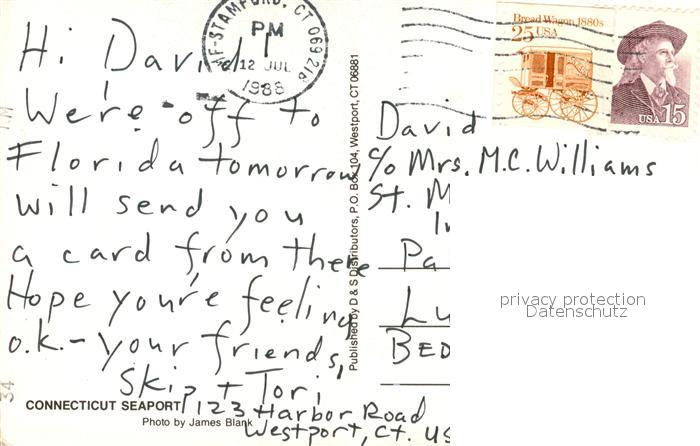 STAMFORD, CT 069
PM
12 JUL
1988
Bread Wagon 1880s
25 USA
USA 15
Hi David
We're off to
Florida tomorrow,
will send you
a card from there
Hope you're feeling
o.k.- your friends,
Skip + Tori
123 Harbor Road
Westport, Ct. US
CONNECTICUT SEAPORT
Photo by James Blank
Published by D & S Distributors, P.O. Box 104, Westport, CT 06881
David
c/o Mrs. M.C. Williams
St. M
In
Pa
Lu
BED
privacy protection
Datenschutz
34